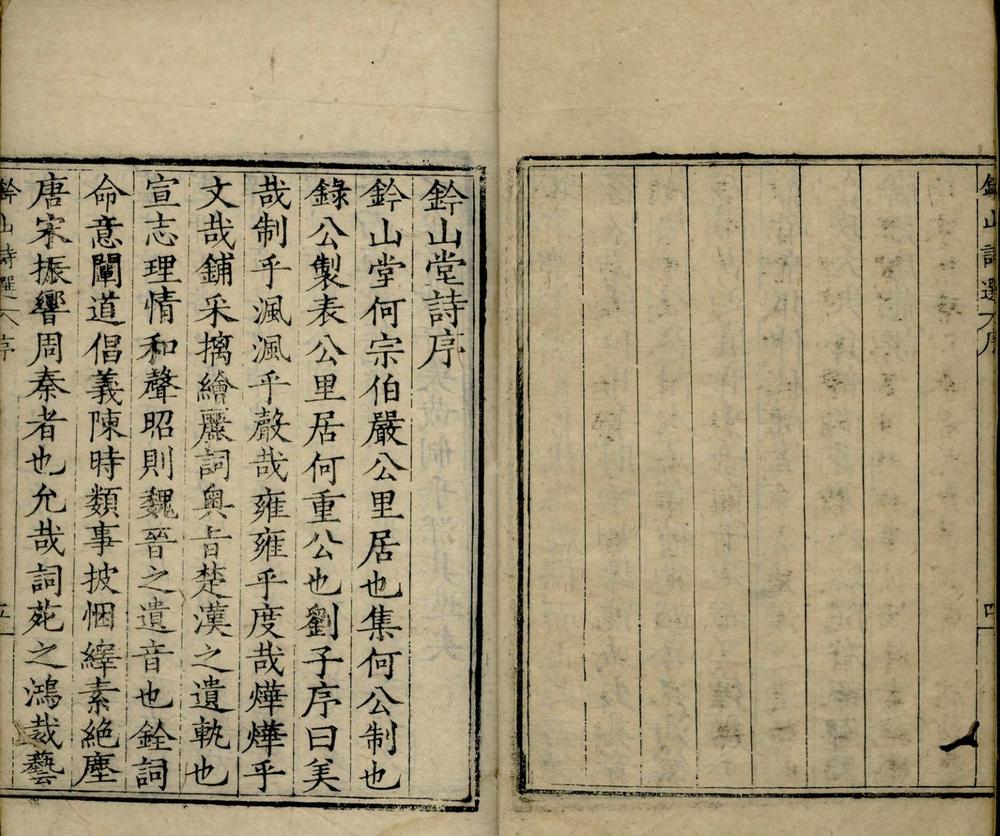 鈐山詩選 序
四
鈐山堂詩序
鈐山堂何宗伯嚴公里居也集何公制也
錄公製表公里居何重公也劉子序曰美
哉制乎渢渢乎聲哉雍雍乎度哉燁燁乎
文哉鋪采摛繪麗詞奥旨楚漢之遺軌也
宣志理情和聲昭則魏晉之遺音也銓詞
命意闡道倡義陳時類事披悃繹素絶塵
唐宋振響周秦者也允哉詞苑之鴻裁藝
鈐山詩選 序
五